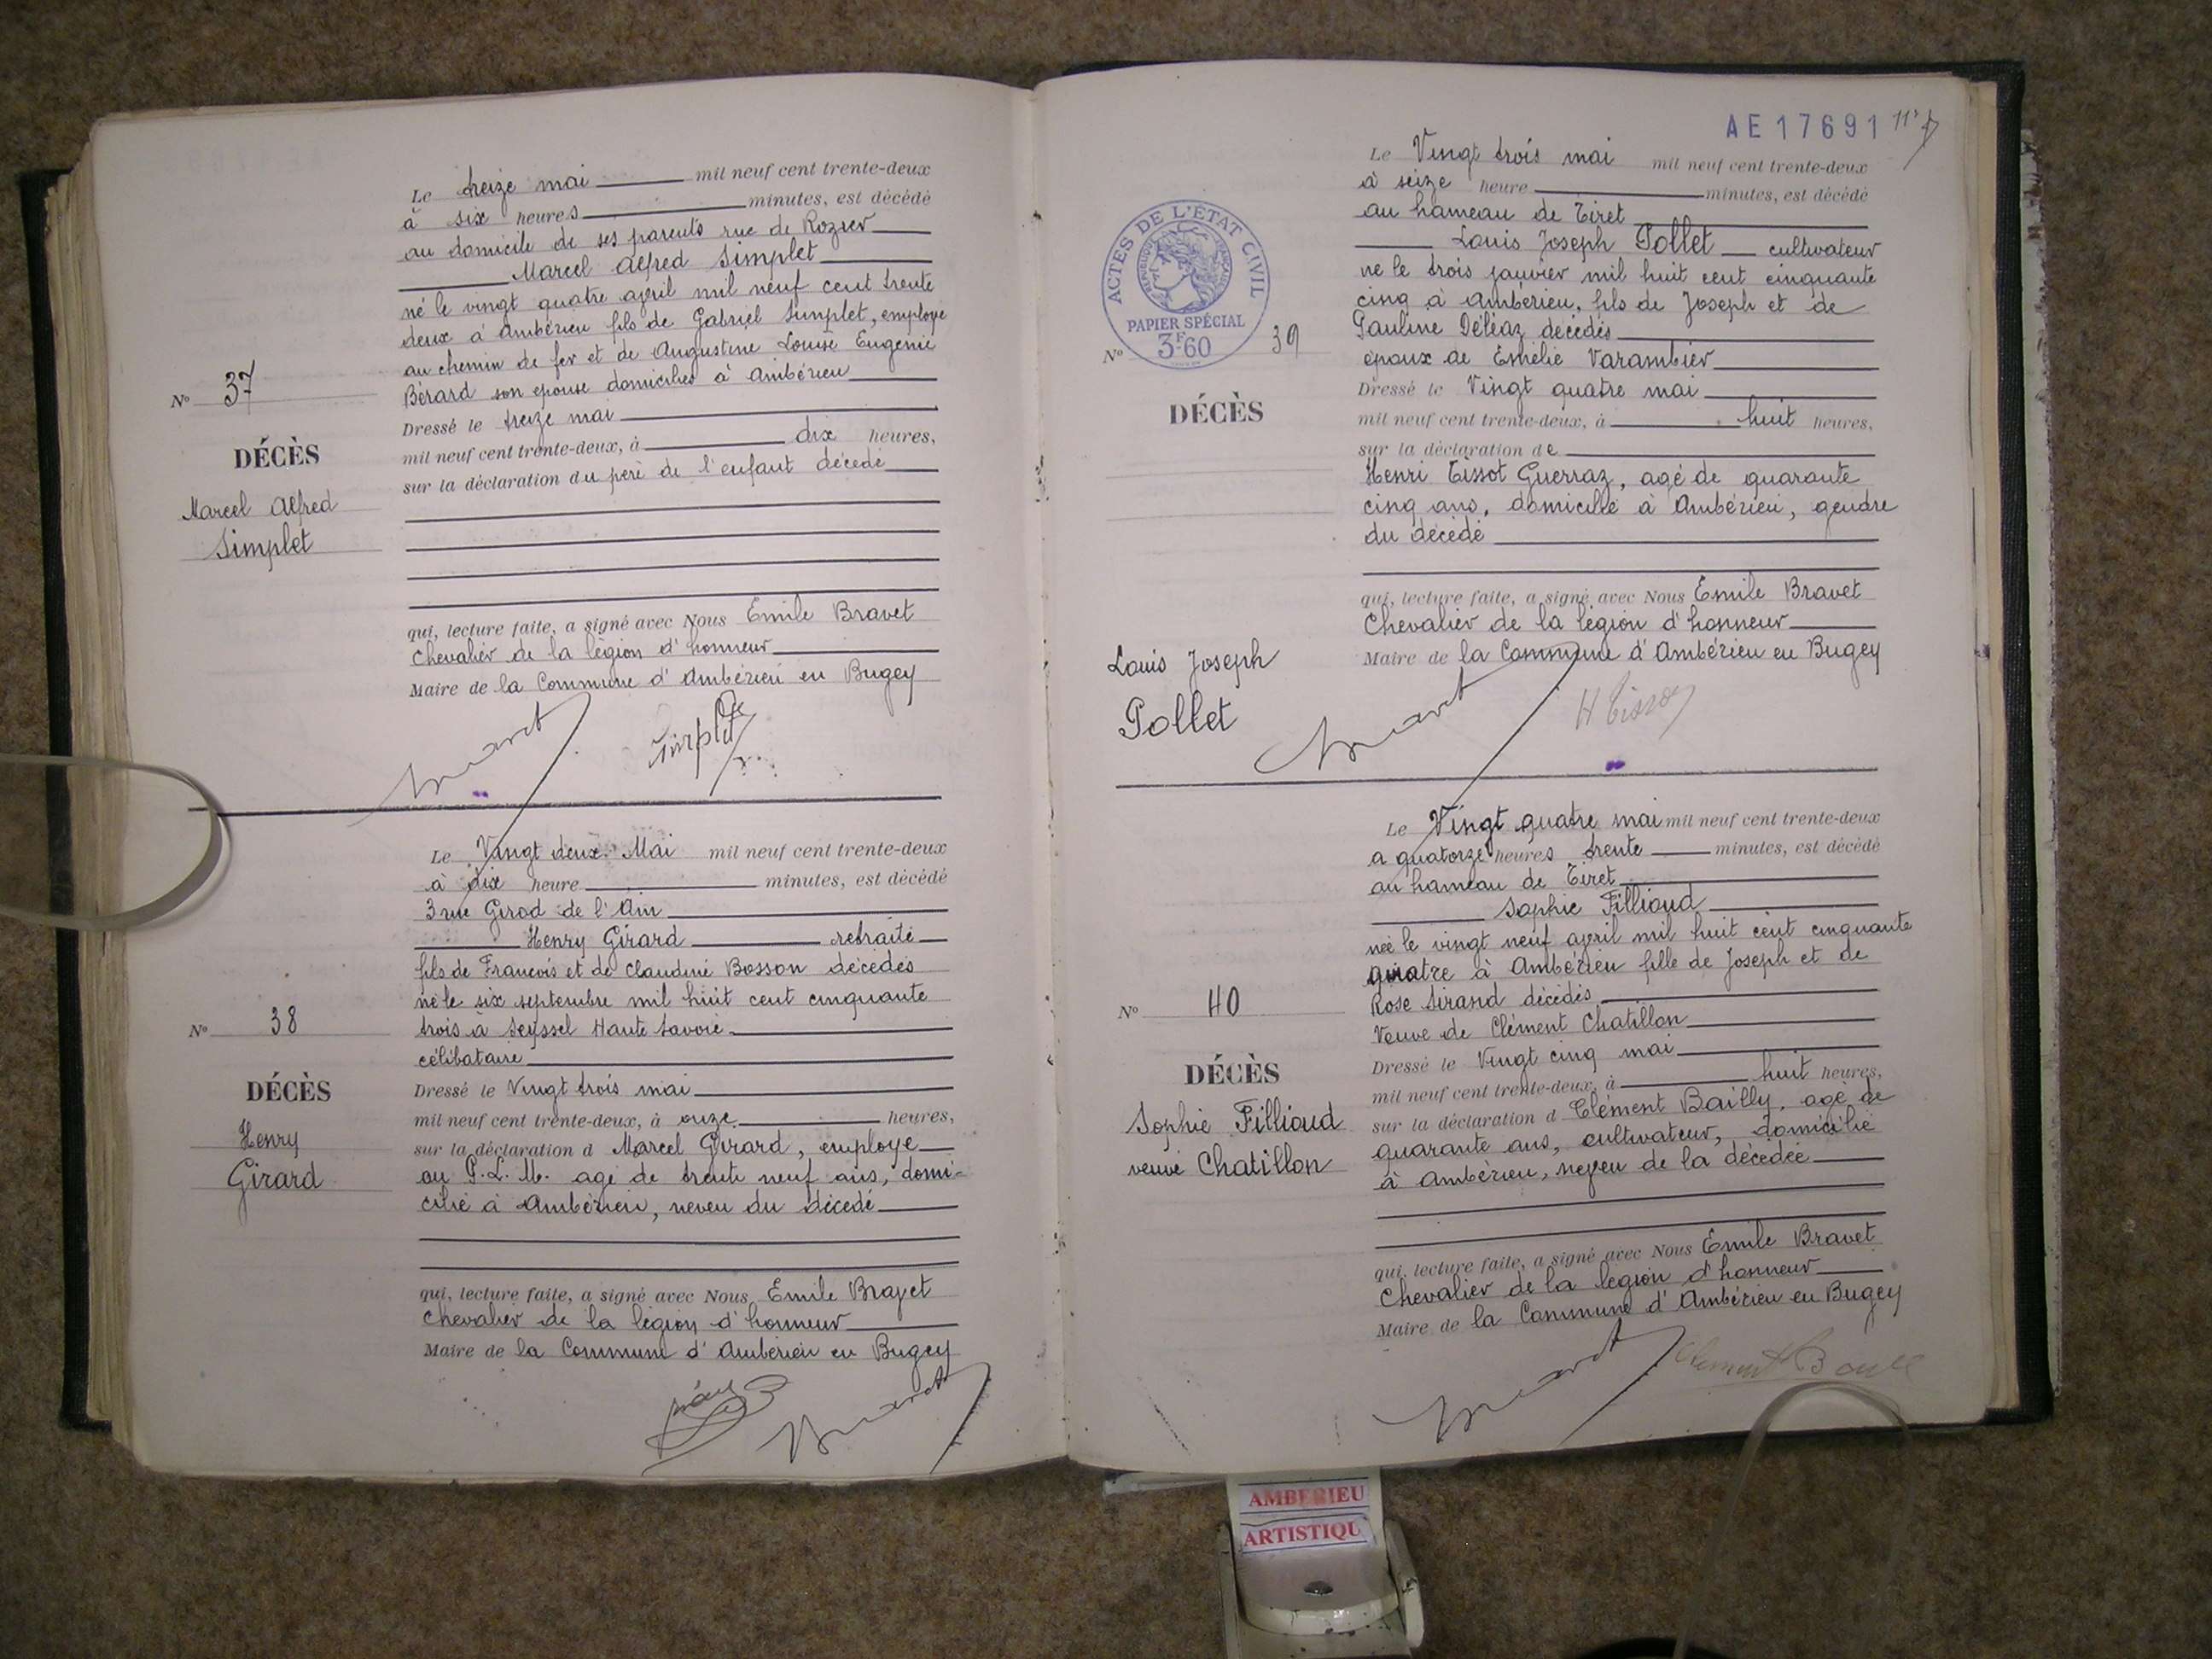 Le treize mai mil neuf cent trente-deux
à six heures minutes, est décédé
au domicile de ses parents rue de Rozier
Marcel Alfred Simplet
né le vingt quatre april mil neuf cent trente
deux à Ambérieu fils de Gabriel Simplet, employé
au chemin de fer et de Augustine Louise Eugénie
Bérard son épouse domiciliés à Ambérieu
N° 37
Dressé le treize mai
mil neuf cent trente-deux, à dix heures,
DÉCÈS
sur la déclaration du père de l'enfant décédé
Marcel Alfred
Simplet
qui, lecture faite, a signé avec Nous Emile Bravet
Chevalier de la légion d'honneur
Maire de la Commune d'Ambérieu en Bugey
Bravet Simplet
Le Vingt deux Mai mil neuf cent trente-deux
à dix heure minutes, est décédé
3 rue Girod de l'Ain
Henry Girard retraité
fils de François et de Claudine Bosson décédés
né le six septembre mil huit cent cinquante
N° 38
trois à Seyssel Haute Savoie
célibataire
DÉCÈS
Dressé le Vingt trois mai
mil neuf cent trente-deux, à onze heures,
Henry
Girard
sur la déclaration d Marcel Girard, employé
au P.L.M. agé de trente neuf ans, domi-
cilié à Ambérieu, neveu du décédé
qui, lecture faite, a signé avec Nous Emile Bravet
Chevalier de la légion d'honneur
Maire de la Commune d'Ambérieu en Bugey
Bravet
AE17691
Le Vingt trois mai mil neuf cent trente-deux
à seize heure minutes, est décédé
au hameau de Tiret
Louis Joseph Pollet cultivateur
né le trois janvier mil huit cent cinquante
cinq à Ambérieu, fils de Joseph et de
Pauline Déléaz décédés
époux de Emélie Varambier
ACTES DE L'ÉTAT CIVIL
RÉPUBLIQUE FRANÇAISE
PAPIER SPÉCIAL
3F60
N° 39
Dressé le Vingt quatre mai
DÉCÈS
mil neuf cent trente-deux, à huit heures,
sur la déclaration de
Henri Tissot Guerraz, agé de quarante
cinq ans, domicilié à Ambérieu, gendre
du décédé
qui, lecture faite, a signé avec Nous Emile Bravet
Chevalier de la légion d'honneur
Maire de la Commune d'Ambérieu en Bugey
Louis Joseph
Pollet
Bravet H Tissot
Le Vingt quatre mai mil neuf cent trente-deux
a quatorze heures trente minutes, est décédé
au hameau de Tiret
Sophie Fillioud
née le vingt neuf april mil huit cent cinquante
quatre à Ambérieu fille de Joseph et de
Rose Sirand décédés
N° 40
Veuve de Clément Chatillon
Dressé le Vingt cinq mai
DÉCÈS
mil neuf cent trente-deux, à huit heures,
sur la déclaration d Clément Bailly, agé de
Sophie Fillioud
veuve Chatillon
quarante ans, cultivateur, domicilié
à Ambérieu, neveu de la décédée
qui, lecture faite, a signé avec Nous Emile Bravet
Chevalier de la légion d'honneur
Maire de la Commune d'Ambérieu en Bugey
Bravet Clément
AMBERIEU
ARTISTIQU